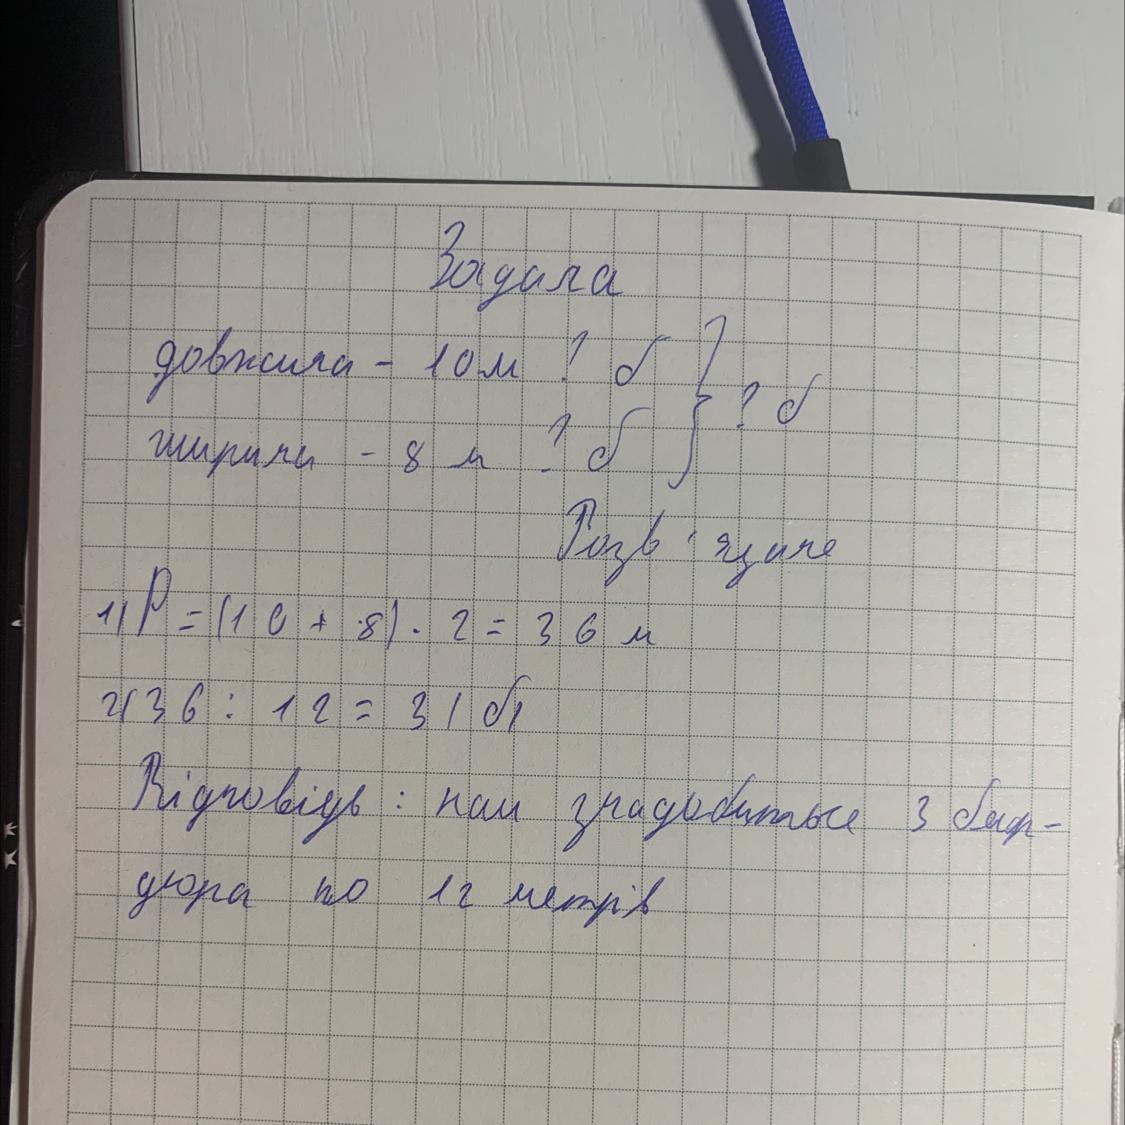 Задача
довжина - 10м ? б } ? б
ширина - 8 м ? б
Розв'язане
1) P = (10 + 8) · 2 = 36 м
2) 36 : 12 = 3(б)
Відповідь: нам знадобиться 3 бор-
дюра по 12 метрів